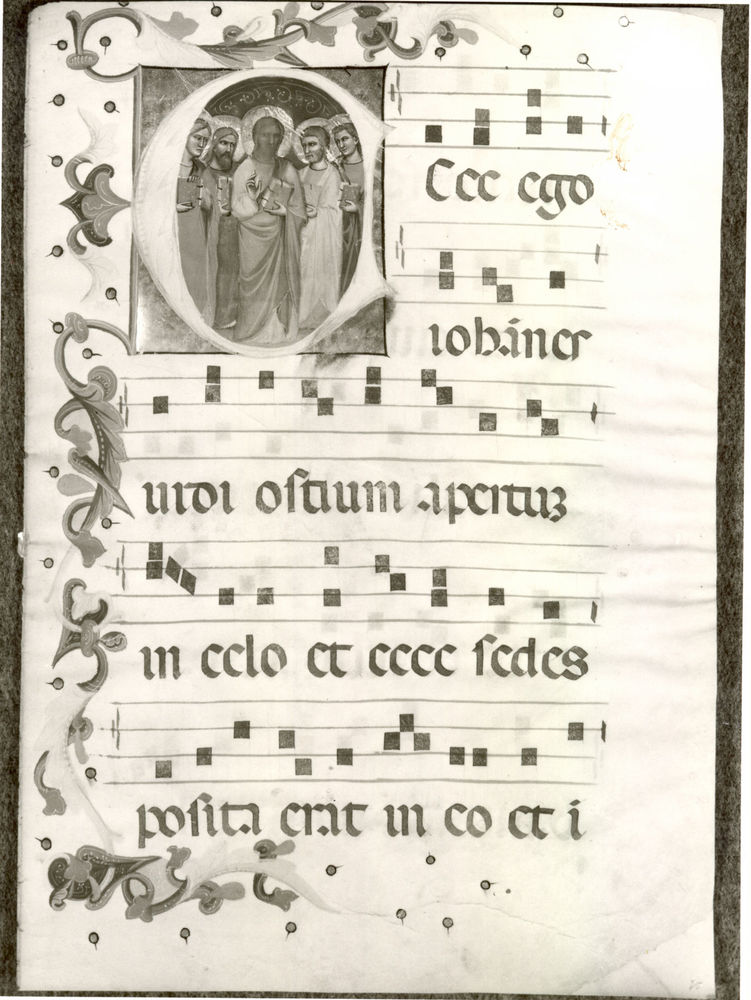 Ccc ego
iohannes
uidi ostium apertuʒ
in celo et ecce sedes
posita erat in eo et i